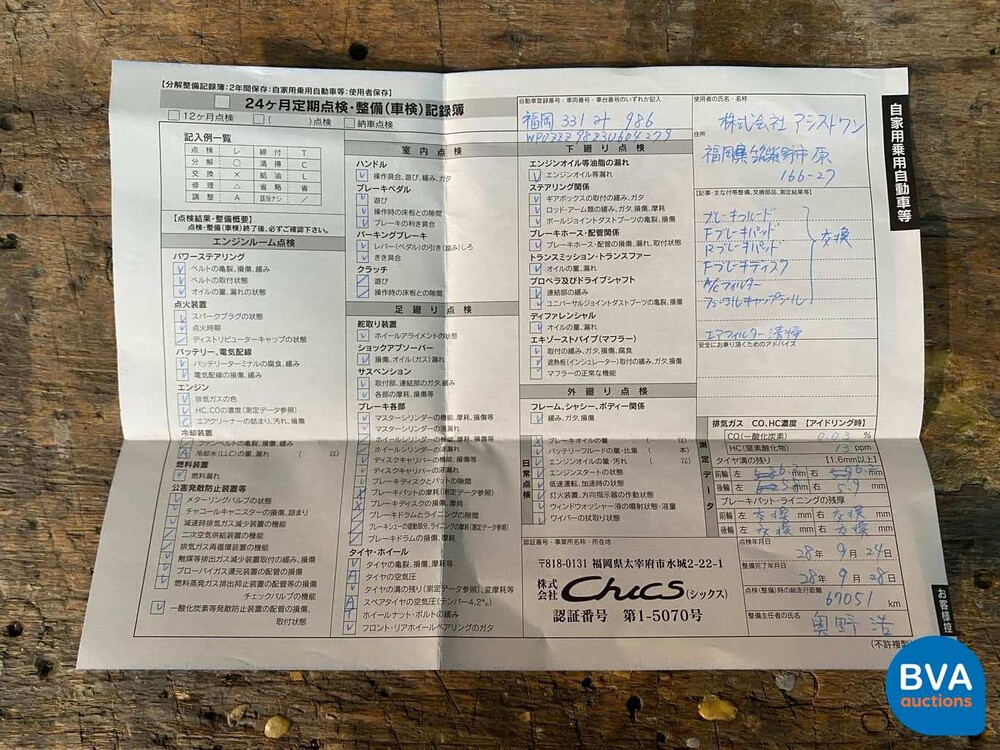 【分解整備記録簿：2年間保存：自家用乗用自動車等：使用者保存】
24ヶ月定期点検・整備(車検)記録簿
12ヶ月点検 ( )点検 納車点検
記入例一覧
点検 レ 締付 T
分解 ○ 清掃 C
交換 × 給油 L
修理 △ 省略 省
調整 A 該当ナシ ／
【点検結果・整備概要】
点検・整備(車検)終了後、必ずご確認下さい。
エンジンルーム点検
パワーステアリング
ベルトの亀裂、損傷、緩み
ベルトの取付状態
オイルの量、漏れの状態
点火装置
スパークプラグの状態
点火時期
ディストリビューターキャップの状態
バッテリー、電気配線
バッテリーターミナルの腐食、緩み
電気配線の損傷、緩み
エンジン
排気ガスの色
HC、COの濃度(測定データ参照)
エアクリーナーの詰まり、汚れ、損傷
冷却装置
ファンベルトの亀裂、損傷、緩み
冷却水(LLC)の量、漏れ
燃料装置
燃料漏れ
公害発散防止装置等
メターリングバルブの状態
チャコールキャニスターの損傷、詰まり
減速時排気ガス減少装置の機能
二次空気供給装置の機能
排気ガス再循環装置の機能
触媒等排出ガス減少装置取付の緩み、損傷
ブローバイガス還元装置の配管の損傷
燃料蒸発ガス排出抑止装置の配管等の損傷
チェックバルブの機能
一酸化炭素等発散防止装置の配管の損傷、
取付状態
室内点検
ハンドル
操作具合、遊び、緩み、ガタ
ブレーキペダル
遊び
操作時の床板との隙間
ブレーキの利き具合
パーキングブレーキ
レバー(ペダル)の引き(踏み)しろ
きき具合
クラッチ
遊び
操作時の床板との隙間
足廻り点検
舵取り装置
ホイールアライメントの状態
ショックアブソーバー
損傷、オイル(ガス)漏れ
サスペンション
取付部、連結部のガタ、緩み
各部の摩耗、損傷
ブレーキ各部
マスターシリンダーの機能、摩耗、損傷
マスターシリンダーの液漏れ
ホイールシリンダーの機能、摩耗、損傷
ホイールシリンダーの液漏れ
ディスクキャリパーの機能、損傷等
ディスクキャリパーの液漏れ
ブレーキディスクとパットの隙間
ブレーキパットの摩耗(測定データ参照)
ブレーキディスクの損傷、摩耗
ブレーキドラムとライニングの隙間
ブレーキシューの摺動部分、ライニングの摩耗(測定データ参照)
ブレーキドラムの損傷、摩耗
タイヤ・ホイール
タイヤの亀裂、損傷、摩耗等
タイヤの空気圧
タイヤの溝の残り(測定データ参照)、変摩耗等
スペアタイヤの空気圧(テンパー4.2㎏)
ホイールナット・ボルトの緩み
フロント・リアホイールベアリングのガタ
自動車登録番号・車両番号・車台番号のいずれか記入
福岡 331 986
下廻り点検
エンジンオイル等油脂の漏れ
エンジンオイル等漏れ
ステアリング関係
ギアボックスの取付の緩み、ガタ
ロッド・アーム類の緩み、ガタ、損傷、摩耗
ボールジョイントダストブーツの亀裂、損傷
ブレーキホース・配管関係
ブレーキホース・配管の損傷、漏れ、取付状態
トランスミッション・トランスファー
オイルの量、漏れ
プロペラ及びドライブシャフト
連結部の緩み
ユニバーサルジョイントダストブーツの亀裂、損傷
ディファレンシャル
オイルの量、漏れ
エキゾーストパイプ(マフラー)
取付の緩み、ガタ、損傷、腐食
遮熱板(インシュレーター)取付の緩み、ガタ、損傷
マフラーの正常な機能
外廻り点検
フレーム、シャシー、ボディー関係
緩み、ガタ、損傷
日常点検
ブレーキオイルの量 ( ㍑)
バッテリーフルードの量・比重 ( 本)
エンジンオイルの量・汚れ ( ㍑)
エンジンスタートの状態
低速運転、加速時の状態
灯火装置、方向指示器の作動状態
ウィンドウォッシャー液の噴射状態・液量
ワイパーの拭取り状態
認証番号・事業所名称・所在地
〒818-0131 福岡県太宰府市水城2-22-1
株式会社 Chics (シックス)
認証番号 第1-5070号
使用者の氏名・名称
株式会社 アシストワン
住所
福岡県筑紫野市原
166-27
【記事・主な付帯整備、交換部品、測定結果等】
ブレーキフルード
Fブレーキパッド
Rブレーキパッド
Fブレーキディスク
A/Cフィルター
交換
エアフィルター 清掃
安全にお乗り頂くためのアドバイス
排気ガス CO、HC濃度 【アイドリング時】
測定データ
CO(一酸化炭素) 0.03 %
HC(窒素酸化物) 13 ppm
タイヤ溝の残り 【1.6mm以上】
前輪 左 mm 右 mm
後輪 左 mm 右 5.9 mm
ブレーキパット・ライニングの残厚
前輪 左 交換 mm 右 交換 mm
後輪 左 交換 mm 右 交換 mm
点検年月日
28年 9月 24日
整備完了年月日
28年 9月 28日
点検(整備)時の総走行距離
69051 km
整備主任者の氏名
奥野 浩
(不許複製)
自家用乗用自動車等
お客様控
BVA
auctions